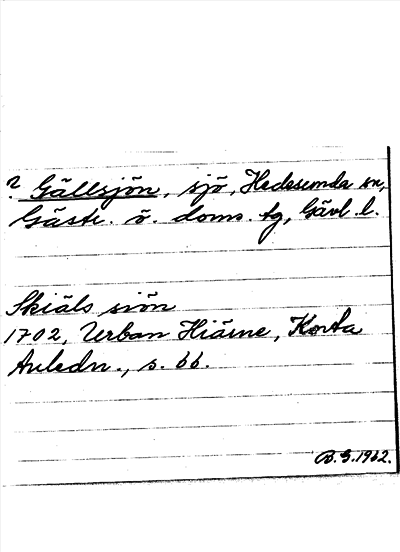 ? Gällsjön, sjö, Hedesunda sn,
Gästr. ö. doms. tg, Gävl. l.
Skiäls siön
1702, Urban Hiärne, Korta
Anledn., s. 66.
B.S. 1962.